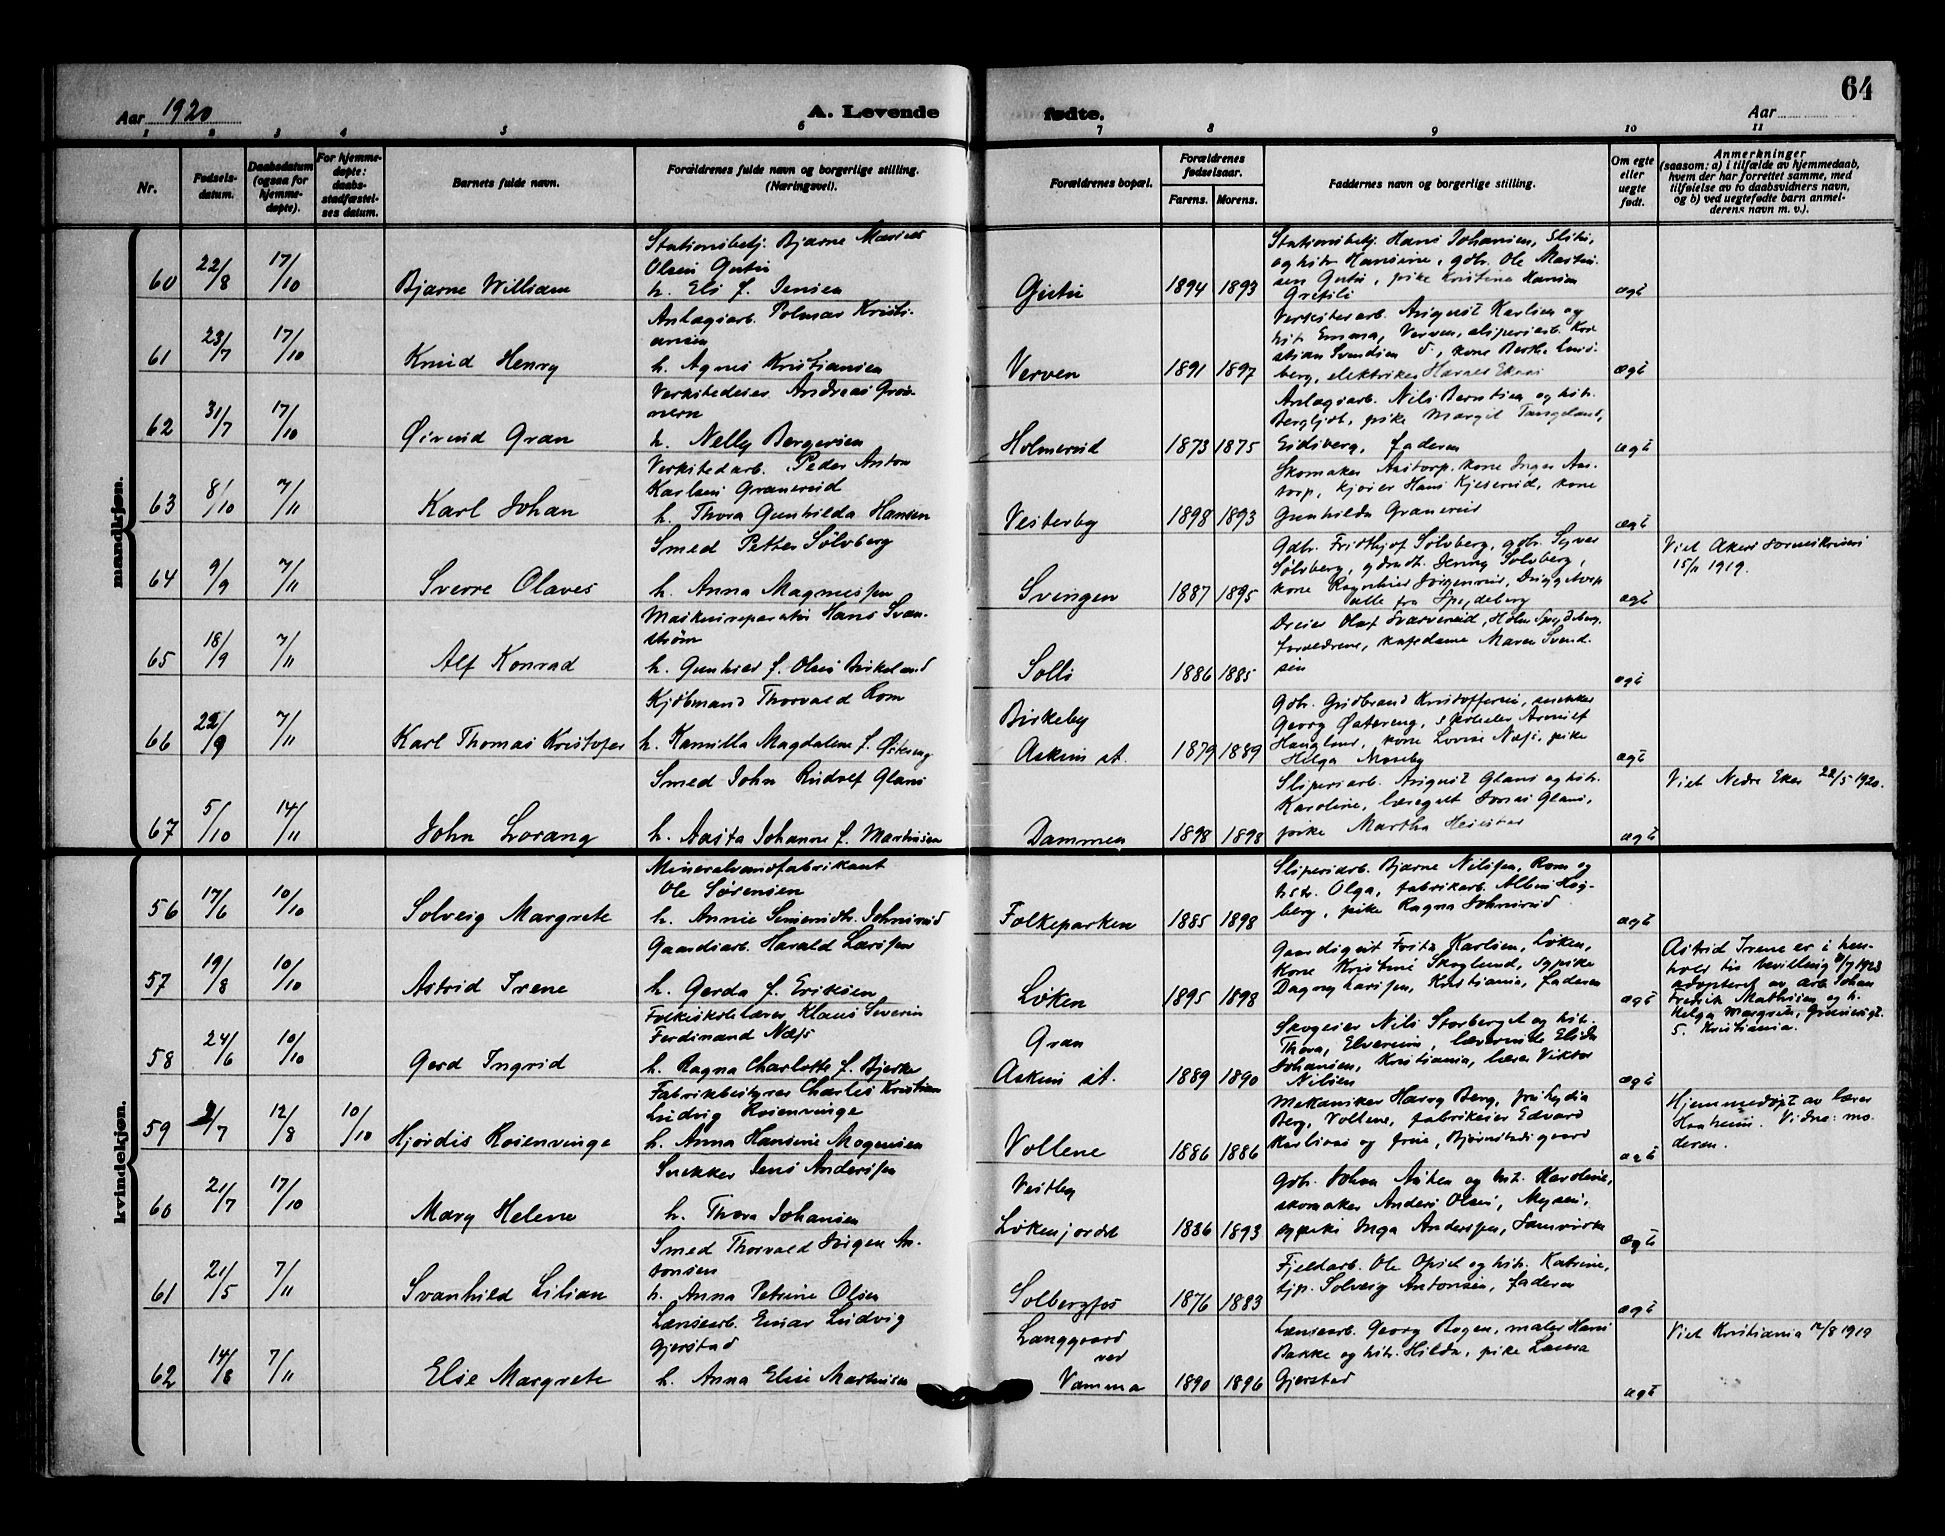 64
Aar 1920
A. Levende
fødte.
Aar
1 2 3 4 5 6 7 8 9 10 11
Nr.
Fødsels-
datum.
Daabsdatum
(ogsaa for
hjemme-
døpte).
For hjemme-
døpte:
daabs-
stadfæstel-
ses datum.
Barnets fulde navn.
Forældrenes fulde navn og borgerlige stilling.
(Næringsvei).
Forældrenes bopæl.
Forældrenes
fødselsaar.
Farens. Morens.
Faddernes navn og borgerlige stilling.
Om egte
eller
uegte
født.
Anmerkninger
(saasom: a) i tilfælde av hjemmedaab,
hvem der har forrettet samme, med
tilføielse av to daabsvidners navn,
og b) ved uegtefødte barn anmel-
derens navn m. v.).
mandkjøn.
60 22/8 17/10 Bjarne William
Stationsbetj. Bjarne Marius
Olsen Gutu
h. Els f. Jensen
Gutu 1894 1893
Stationsbetj. Hans Johansen, Slitu,
og hstr Hansine, gdbr. Ole Martin-
sen Gutu, pike Kristine Hansen
Grefsli
ægt
61 23/7 17/10 Knud Henry
Anlægsarb. Polmar Kristi-
ansen
h. Agnes Kristiansen
Verven 1891 1897
Verkstedarb. August Karlsen og
hst Emma, Verven, sliperiarb. Kri
stian Svendsen
berg, elektriker
ægt
62 31/7 17/10 Øivind Gran
Verkstedeier Andreas Grøn-
nern
h. Nelly Bergersen
Holmerud 1873 1875
Anlægsarb. Nils Berntsen og hstr.
Bergljot, pike Margit Tangeland,
Eidsberg, faderen
ægt
63 8/10 7/11 Karl Johan
Verkstedarb. Peder Anton
Karlsen Granerud
h. Thora Gunhilda Hansen
Vesterby 1898 1893
Skomaker Aastorp, kone Inger Aas-
torp, kjører Hans Kjeserud, kone
Gunhilda Granerud
ægt
64 9/9 7/11 Sverre Olaves
Smed Petter Sølvberg
h. Anna Magnussen
Svingen 1887 1895
Gdbr. Fridthjof Sølvberg, gdbr. Syver
Sølvberg, gdrdt. Jenny Sølvberg,
kone Ragnhild
alle fra Spydeberg
ægt
Viet Akers
15/11 1919.
65 18/9 7/11 Alf Konrad
Maskinreparatør Hans Svan-
strøm
h. Gunhild f. Olsen Birkeland
Solli 1886 1885
Dreier Olaf Sværverud, Holm Spydeberg,
forældrene, kafedame Maren Svend-
sen
ægt
66 22/9 7/11 Karl Thomas Kristofer
Kjøbmand Thorvald Rom
h. Kamilla Magdalene f. Østereng
Birkeby
Askim st. 1879 1889
Gdbr. Gudbrand Kristoffersen, snekker
Georg Østereng,
Haugland, kone Lovise Næss, pike
Helga Moseby
ægt
67 5/10 14/11 John Lorang
Smed John Rudolf Glans
h. Aasta Johanne f. Martinsen
Dammen 1898 1898
Sliperiarb. August Glans og hstr.
Karoline, læregut Jonas Glans,
pike Martha
ægt
Viet Nedre Eker 22/5 1920.
kvindekjøn.
56 17/6 10/10 Solveig Margrete
Mineralvandfabrikant
Ole Sørensen
h. Annie
Folkeparken 1885 1898
Sliperiarb. Bjarne Nilssen, Rom og
hstr. Olga, fabrikarb. Albin Hog-
berg, pike Ragna Johnsrud
ægt
57 19/8 10/10 Astrid Irene
Gaardsarb. Harald Larssen
h. Gerda f. Eriksen
Løken 1895 1898
Gaardsgut Fritz Karlsen, Løken,
Kone Kristine Skoglund, sypike
Dagny Larssen, Kristiania, faderen
ægt
Astrid Irene er i hen-
hold til bevilling 31/7 1923
adoptert av arb. Johan
Fredrik Mathisen og h.
Helga Margrete,
5. Kristiania.
58 24/6 10/10 Gerd Ingrid
Folkeskolelærer Klaus Severin
Ferdinand Næss
h. Ragna Charlotte f. Bjerke
Gran
Askim st. 1889 1890
Skogeier Nils Storberget og hstr.
Thora, Elverum, lærerinde Elida
Johansen, Kristiania, lærer Viktor
Nilsen
ægt
59 2/7 12/8 10/10 Hjørdis Rosenvinge
Fabrikbestyrer Charles Kristian
Ludvig Rosenvinge
h. Anna Hansine Mogensen
Vollene 1886 1886
Mekaniker Harry Berg, fru Lydia
Berg, Vollene, fabrikeier Edvard
Karlsaas og frue, Bjørnstadgaard
ægt
Hjemmedøpt av lærer
Haaheim. Vidne: mo-
deren.
60 21/7 17/10 Mary Helene
Snekker Jens Anderssen
h. Thora Johansen
Vestby
Løkenjordet 1886 1893
Gdbr. Johan Asten og hst. Karoline,
skomaker Anders Olsen, Mysen,
sypike Inga Anderssen,
ægte
61 21/5 7/11 Svanhild Lilian
Smed Thorvald Jørgen An-
tonsen
h. Anna Petrine Olsen
Solbergfos 1876 1883
Fjeldarb. Ole Opset og hstr. Katrine,
tjp. Solveig Antonsen, faderen
ægt
62 14/8 7/11 Elsie Margrete
Lænsearb. Einar Ludvig
Gjerstad
h. Anna Elise Martinsen
Langgaard
ved
Vamma 1890 1896
Lænsearb. Georg Bogen, maler Hans
Bakke og hstr. Hilda, pike Laura
Gjerstad
ægt
Viet Kristiania 12/8 1919